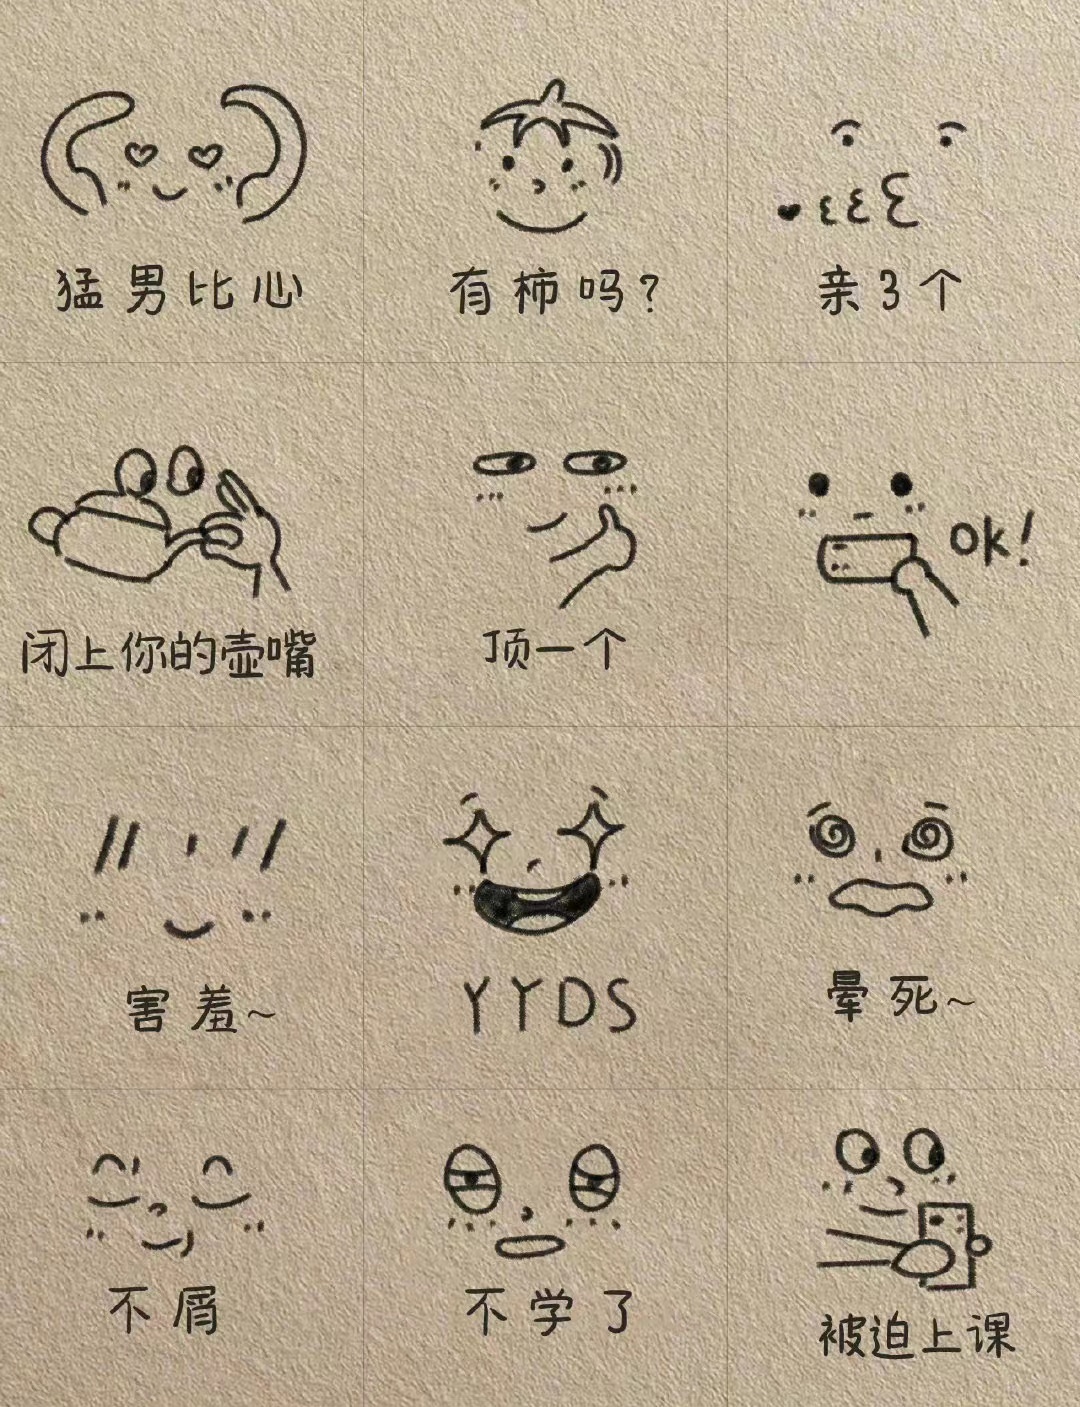 猛男比心
有柿吗?
亲3个
闭上你的壶嘴
顶一个
OK!
害羞~
YYDS
晕死~
不屑
不学了
被迫上课